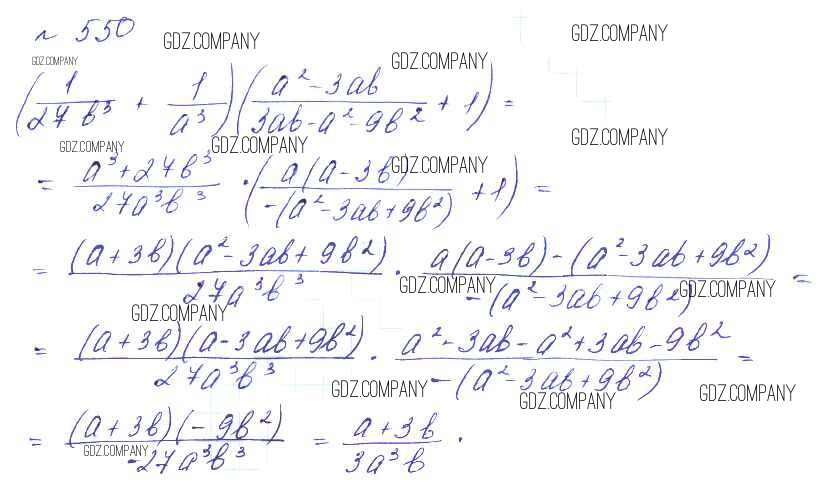 № 550
GDZ.COMPANY GDZ.COMPANY GDZ.COMPANY GDZ.COMPANY
(1/(27b³) + 1/a³)((a² - 3ab)/(3ab - a² - 9b²) + 1) =
GDZ.COMPANY GDZ.COMPANY GDZ.COMPANY GDZ.COMPANY
= (a³ + 27b³)/(27a³b³) · (a(a - 3b)/(-(a² - 3ab + 9b²)) + 1) =
= ((a + 3b)(a² - 3ab + 9b²))/(27a³b³) · (a(a - 3b) - (a² - 3ab + 9b²))/(-(a² - 3ab + 9b²)) =
GDZ.COMPANY GDZ.COMPANY GDZ.COMPANY
= ((a + 3b)(a - 3ab + 9b²))/(27a³b³) · (a² - 3ab - a² + 3ab - 9b²)/(-(a² - 3ab + 9b²)) =
GDZ.COMPANY GDZ.COMPANY GDZ.COMPANY
= ((a + 3b)(- 9b²))/(-27a³b³) = (a + 3b)/(3a³b).
GDZ.COMPANY